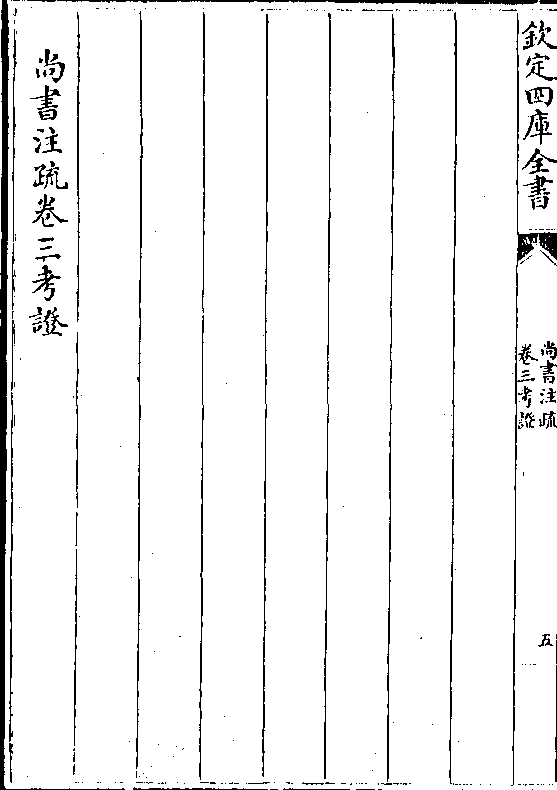 欽定四庫全書
尚書注疏
卷三考證
五
尚書注疏卷三考證